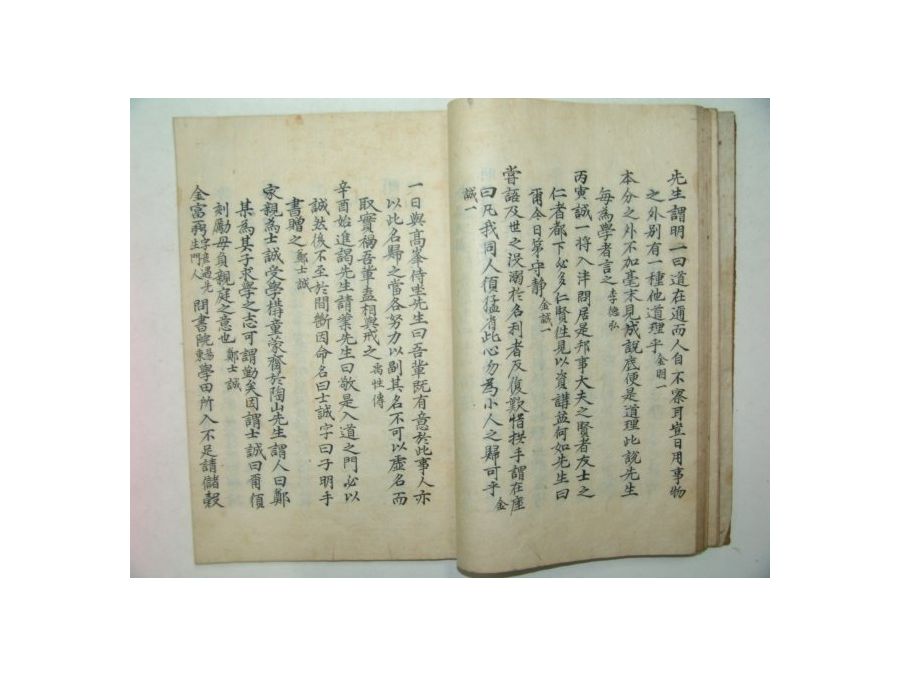 先生謂明一曰道在邇而人自不察耳豈日用事物
之外別有一種他道理乎 金明一
本分之外不加毫末見成說底便是道理此說先生
每為學者言之 李德弘
丙寅誠一將入泮問居是邦事大夫之賢者友士之
仁者都下必多仁賢徃見以資講益何如先生曰
爾今日第守静 金誠一
嘗語及世之沒溺於名利者反復歎惜拱手謂在座
曰凡我同人須猛省此心勿為小人之歸可乎 金
誠一
一日與高峯侍坐先生曰吾輩既有意於此事人亦
以此名歸之當各努力以副其名不可以虛名而
取實禍吾輩盍相與戒之 禹性傳
辛酉始進謁先生請業先生曰敬是入道之門必以
誠然後不至於間斷因命名曰士誠字曰子明手
書贈之 鄭士誠
家親為士誠受學搆童蒙齋於陶山先生謂人曰鄭
某為其子求學之志可謂勤矣因謂士誠曰爾須
刻勵毋負親庭之意也 鄭士誠
金富 字 遇先生門人 問書院 易東 學田所入不足請儲穀